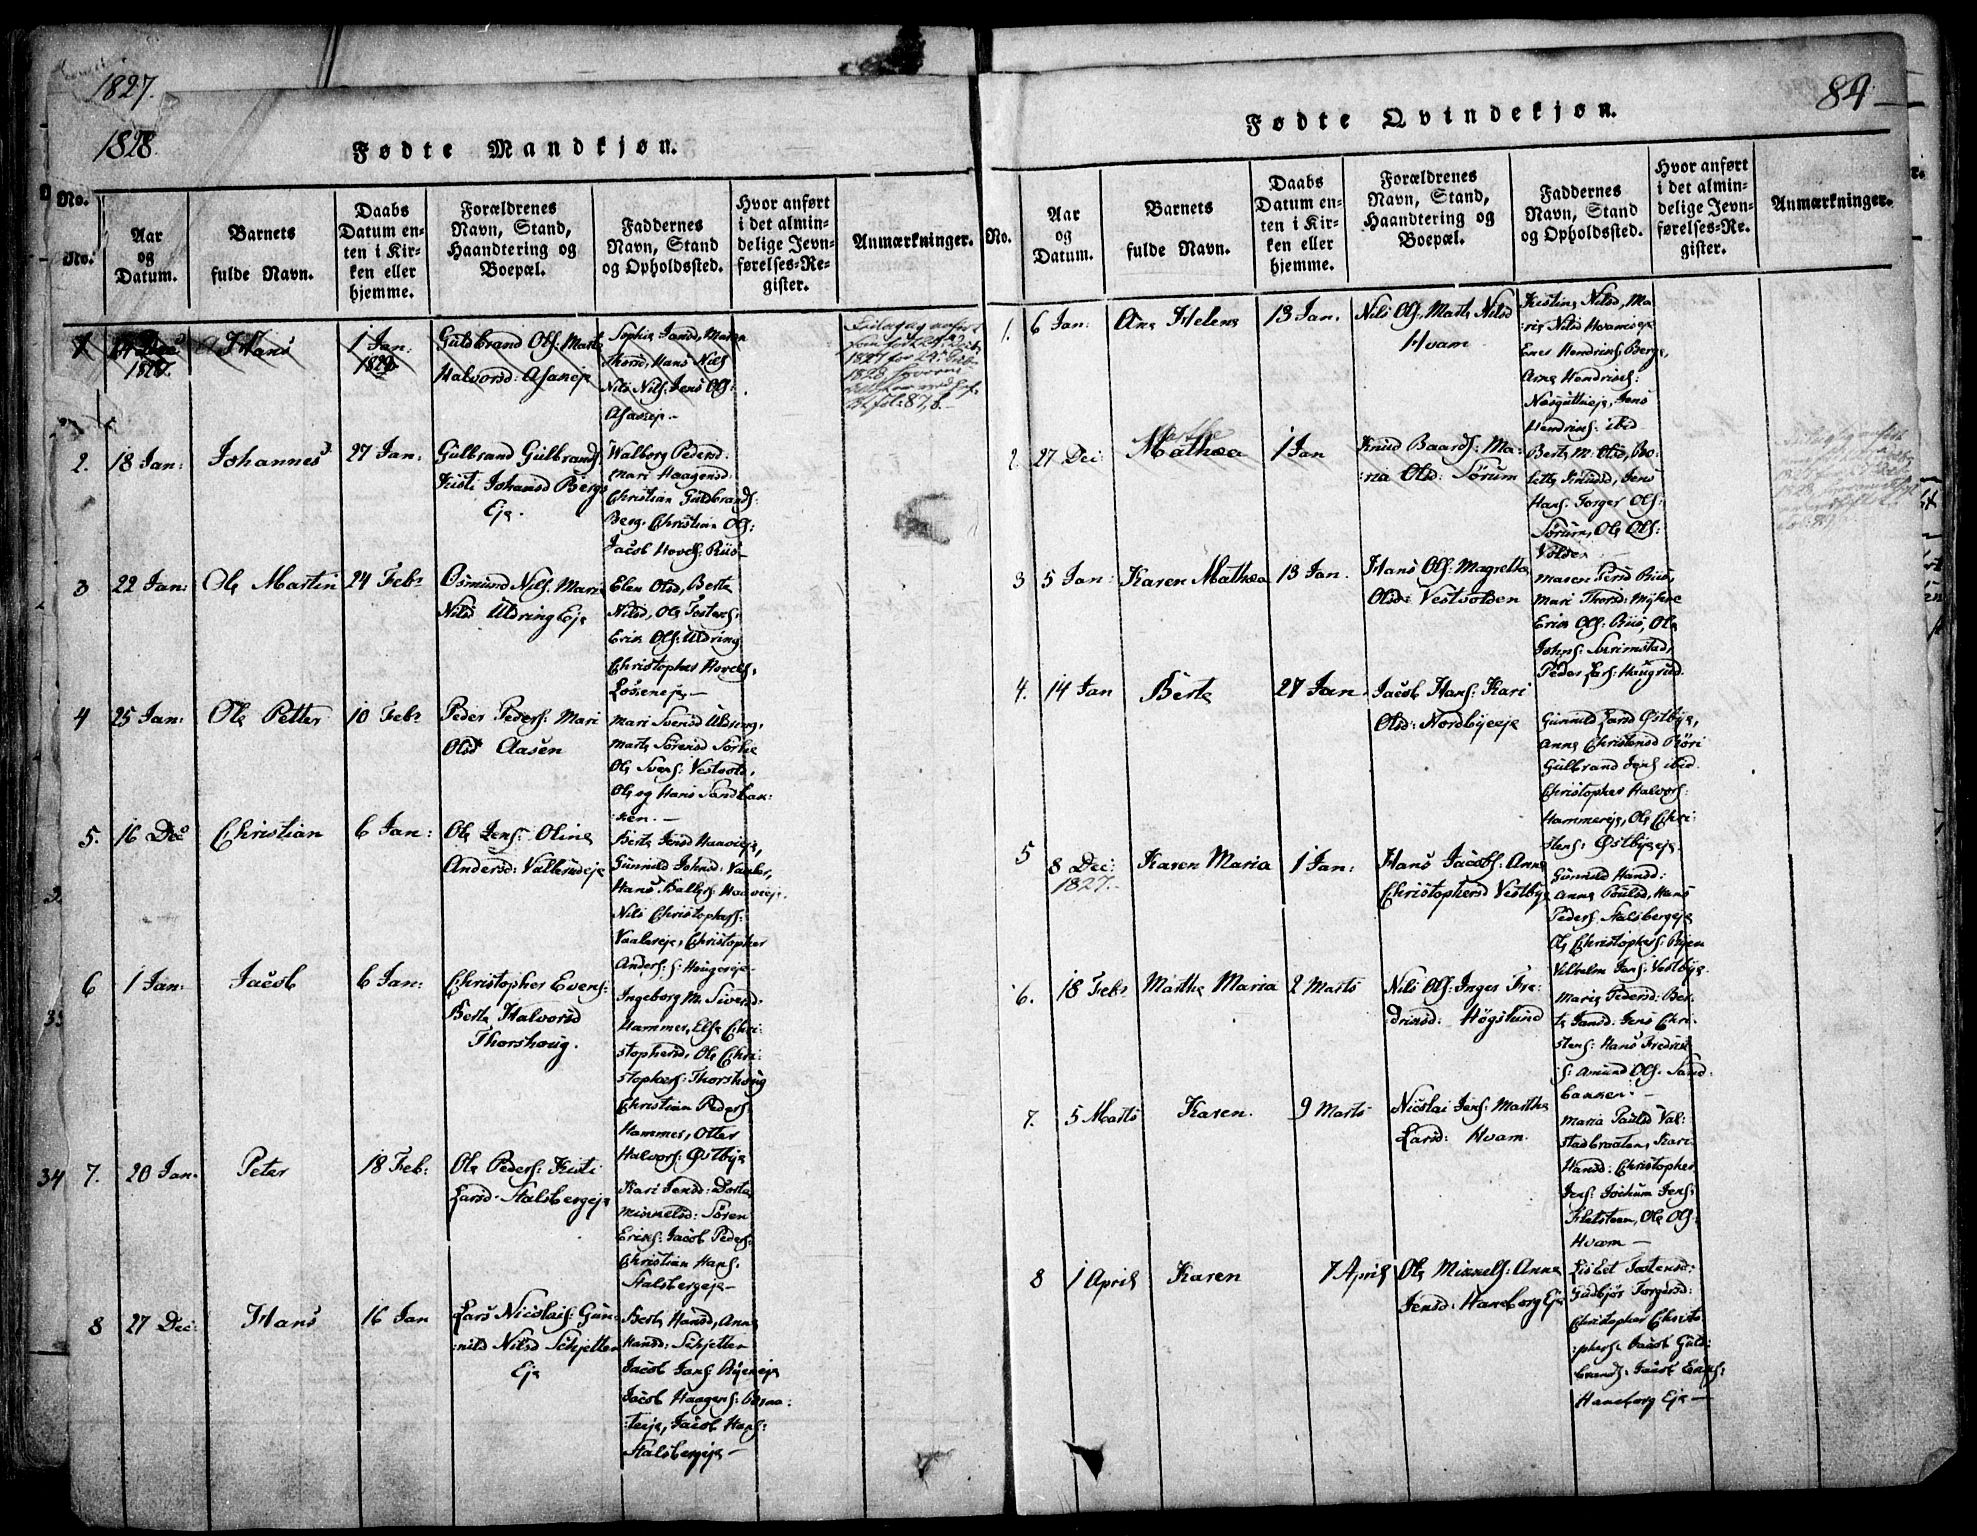 1827.
1828.
Fødte Mandkjøn.
No.
No.
Aar
og
Datum.
Barnets
fulde Navn.
Daabs
Datum en-
ten i Kir-
ken eller
hjemme.
Forældrenes
Navn, Stand,
Haandtering og
Boepæl.
Faddernes
Navn, Stand
og Opholdssted.
Hvor anført
i det almin-
delige Jevn-
førelses-Re-
gister.
Anmærkninger.
1
Hans
1 Jan:
1828
Guldbrand Ols: Marte
Halvorsd: Asaneje
Sophie Jansd, Maren
Thorsd, Hans Nils
Nils Nils: Jens Ols:
Asaneje.-
2.
18 Jan:
Johannes
27 Jan:
Gulbrand Gulbrands:
Kisti Johansd Bergs
Eje.
Walborg Pedersd:
Mari Haagensd:
Christian Guldbrands:
Berg. Christian Ols:
Jacob Hovels: Riis-
3
22 Jan:
Ole Martin
24 Febr
Osmund Nils: Marie
Nilsd Uldring Eje
Elen Olsd, Berte
Nilsd, Ole Tostens:
Erik Ols: Uldring
Christopher Hovels:
Loseneje-
4
25 Jan:
Ole Petter
10 Febr
Peder Peders: Mari
Olsd Aasen
Mari Svensd Uldring,
Marte Sørensd Sørlie
Ole Svens: Vestvold,
Ole og Hans Sandbak-
ken.-
5.
16 Dec
Christian
6 Jan:
Ole Jens: Oline
Andersd: Valbrudeje
Berte Jensd Haavieje,
Gunnild Johnsd: Vaaler,
Hans Balters Haavieje.
Nils Christophers:
Vaalereje, Christopher
Anders: s: Hougereje-
6
1 Jan:
Jacob
6 Jan:
Christopher Evens:
Berte Halvorsd
Thorshoug.
Ingeborg M. Sivertsd:
Hammer, Else Chri-
stophersd, Ole Chri-
stophers: Thorshoug
Christian Peders:
Hammer, Otter
Halvors: Østbye
34
7.
20 Jan.
Peter
18 Feb:
Ole Peders: Kisti
Larsd. Stalsbergeje
Kari Jensd: Dorte
Mikkelsd: Søren
Eriks: Jacob Peders:
Christian Hans:
Stalsbergeje-
8
27 Dec:
Hans
16 Jan
Lars Nicolais: Gun-
:nild Nilsd Schjetten
Eje
Berte Hansd, Anne
Hansd: Schjetten
Jacob Jans: Byeneje
Jacob Haagens:
:teeje, Jacob Hans:
Stalsbergeje-
84
Fødte Qvindekjøn.
No.
Aar
og
Datum.
Barnets
fulde Navn.
Daabs
Datum en-
ten i Kir-
ken eller
hjemme.
Forældrenes
Navn, Stand,
Haandtering og
Boepæl.
Faddernes
Navn, Stand
og Opholdssted.
Hvor anført
i det almin-
delige Jevn-
førelses-Re-
gister.
Anmærkninger.
1.
6 Jan:
Ane Helene
13 Jan.
Nils Ols, Marte Nilsd
Hvam.
Kistine Nilsd, Ma-
rie Nilsd Hvamseje
Enes Hendriks: Berge,
Arne Hendriks:
Næsguttueje, Jens
Hendriks: ibid
2.
27 Dec:
Marthe
Mathea
1 Jan
Knud Baards: Ma-
:ria Olsd: Sørum
Berte M: Olsd, Bo-
lette Knudsd, Jens
Hans. Torger Ols:
Sørum, Ole Ols:
Volden
3
5 Jan:
Karen Mathea
13 Jan.
Hans Ols: Magrethe
Olsd: Vestvolden
Maren Persd Riis,
Mari Thorsd: Myhre
Erik Ols: Riis, Ole
Johns: Svrimstad,
Peder Lars: Haugrud.
4.
14 Jan
Berte
27 Jan.
Jacob Hans: Kari
Olsd: Nordbyeeje
Gunnild Larsd Østbye,
Anne Christensd Røri
Gulbrand Jens ibid.
Christopher Halvors:
Hammereje, Ole Chri-
stens: Østbyeeje.
5
8 Dec:
1827.
Karen Maria
1 Jan:
Hans Jacobs: Anne
Christophersd Vestbye
Gunnild Hansd:
Anne Poulsd, Hans
Peders, Stalsbergeje
Ole Christophers: Byen
Vilhelm Jans: Vestbye.
6.
18 Febr
Marthe Maria
2 Marts
Nils Ols: Inger Fre-
driksd: Høgslund
Marie Pedersd: Ber-
te Jansd: Jens Chri-
stens: Hans Fredrik
s: Amund Ols: Sand-
bakken:-
7.
5 Marts
Karen.
9 Marts
Nicolai Jens: Marthe
Larsd: Hvam.
Maria Paulsd Val-
stadbraaten, Kari
Hansd: Christopher
Jens: Jochum Jens:
Fladsteen, Ole Ols:
Hvam-
8
1 April
Karen
7 April
Ole Mikkels: Anne
Jensd: Haneborg Eje
Lisbet Tostensd:
Gudbjør Torgersd:
Christopher Christo-
:phers: Jacob Guld-
brands: Jacob Eriks:
Haneborg Eje-